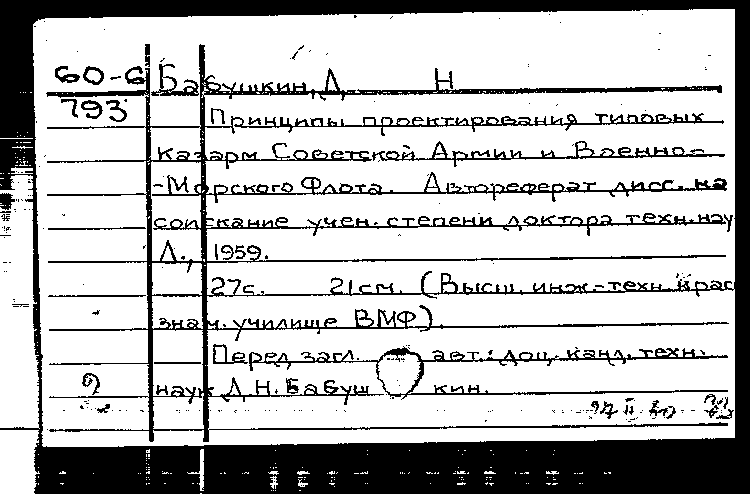 60-6 Бабушкин, Д. Н
793
Принципы проектирования типовых
казарм Советской Армии и Военно-
-Морского Флота. Автореферат дисс. на
соискание учен. степени доктора техн. нау
Л., 1959.
27с. 21см. (Высш. инж.-техн. Крас
знам. училище ВМФ).
Перед загл. авт.: доц. канд. техн.
2 наук Д. Н. Бабушкин.